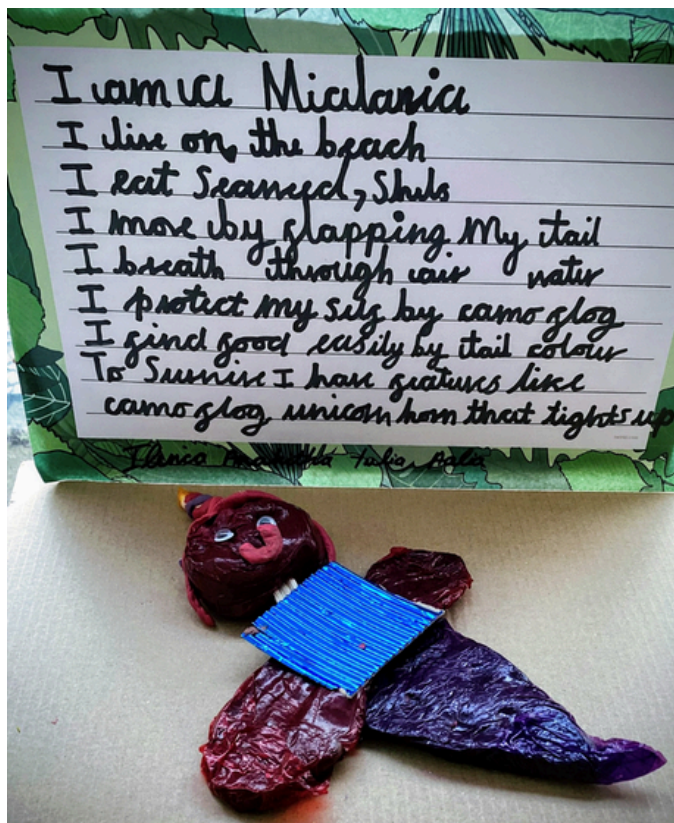 I am a Mialania
I live on the beach
I eat Seaweed, Shels
I move by glapping My tail
I breath through air water
I protect my self by camo glog
I gind good easily by tail colour
To Survive I have geatures like
camo glog unicorn horn that lights up
Yulia, Aalia